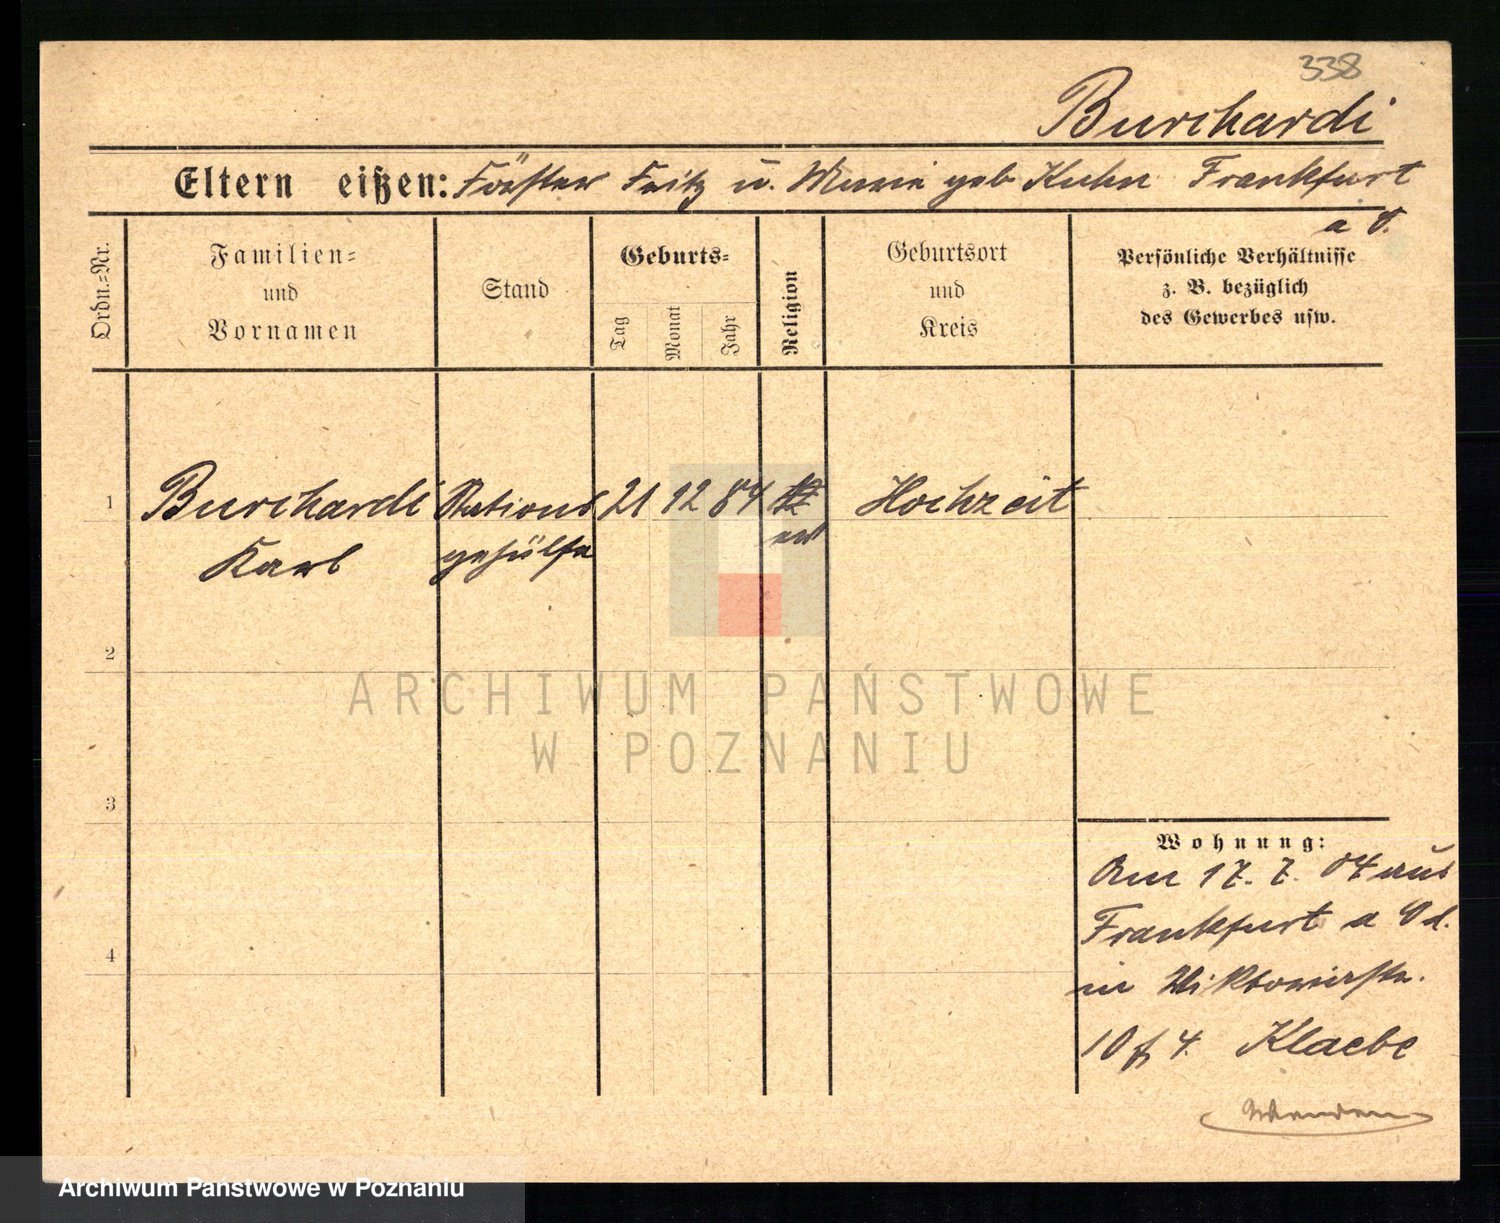 338
Burchardi
Eltern eißen: Förster Fritz u. Marie geb Kuhn Frankfurt
a O.
Ordn.-Nr.
Familien-
und
Vornamen
Stand
Geburts-
Tag
Monat
Jahr
Religion
Geburtsort
und
Kreis
Persönliche Verhältnisse
z. B. bezüglich
des Gewerbes usw.
1 Burchardi Stations 21 12 84 Hochzeit
Karl gehülfe ev
2
ARCHIWUM PAŃSTWOWE
W POZNANIU
3
Wohnung:
Am 17. 7. 04 aus
Frankfurt a Od.
in Wiktoriastr.
10 f 4. Klaebe
4
Wenden
Archiwum Państwowe w Poznaniu